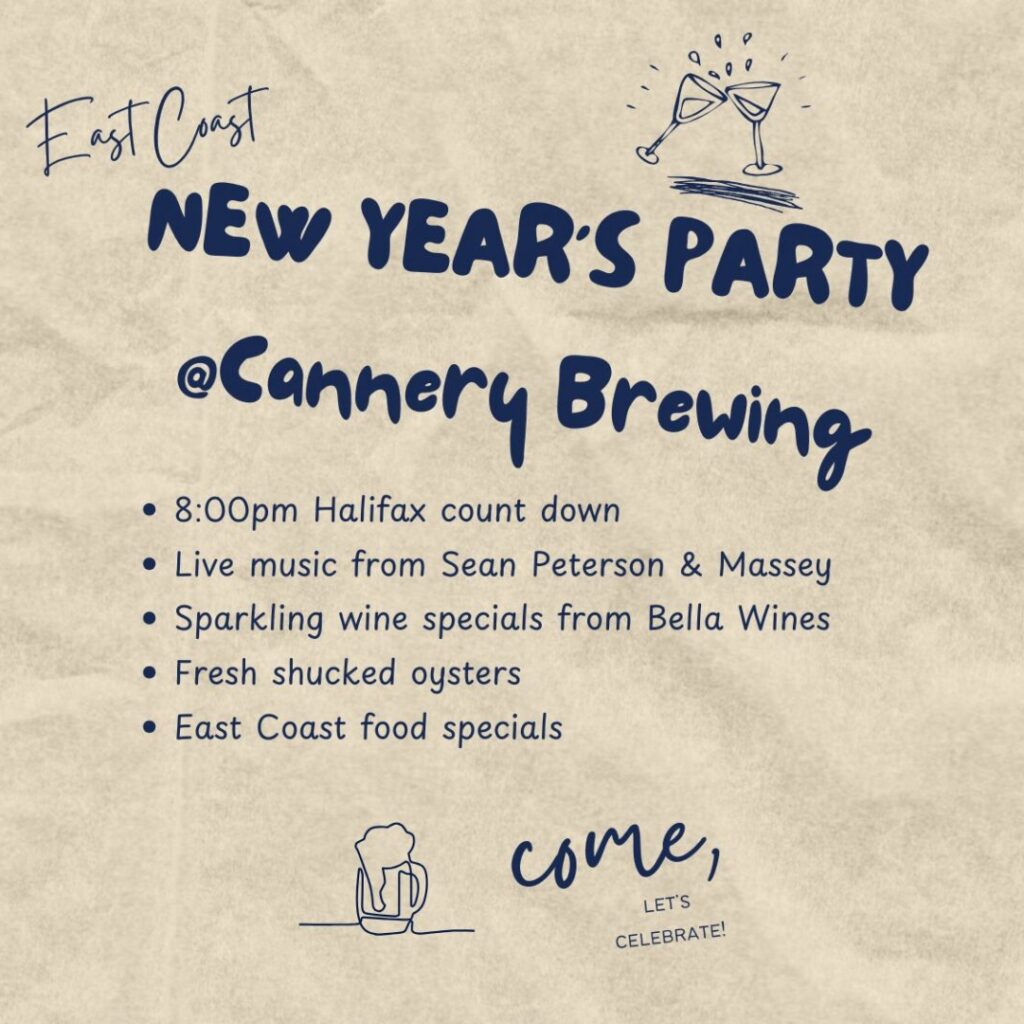 East Coast
NEW YEAR'S PARTY
@Cannery Brewing
• 8:00pm Halifax count down
• Live music from Sean Peterson & Massey
• Sparkling wine specials from Bella Wines
• Fresh shucked oysters
• East Coast food specials
come,
LET'S
CELEBRATE!